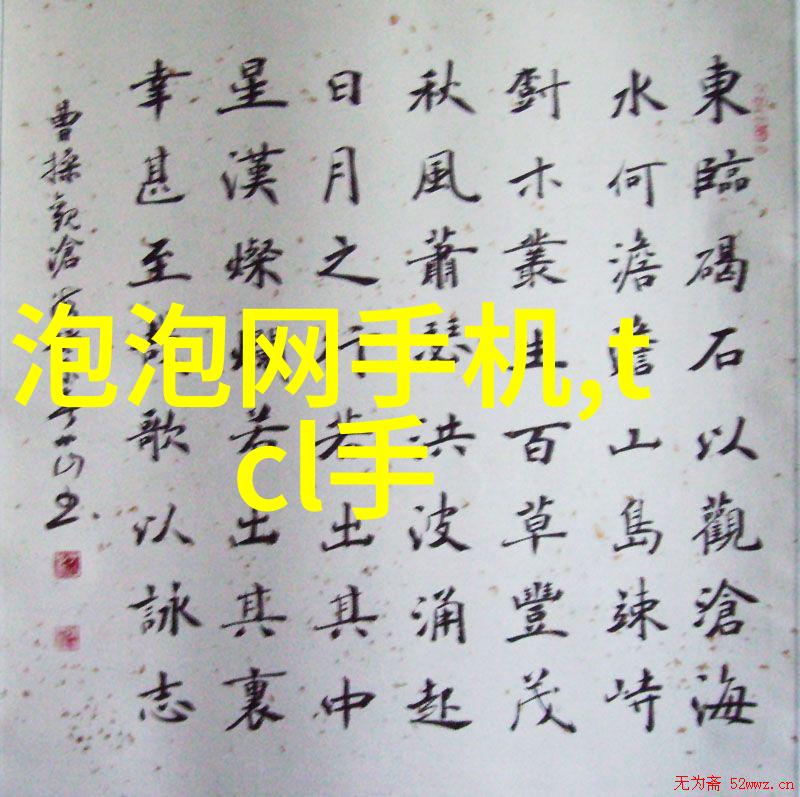 東臨碣石以觀滄海
水何澹澹山島竦峙
尌木叢生百草豐茂
秋風蕭瑟洪波涌起
日月之行若出其中
星漢燦爛若出其裏
幸甚至哉歌以詠志
曹操觀滄海
泡泡网手机,t
cl手
无为斋 52wwz.cn